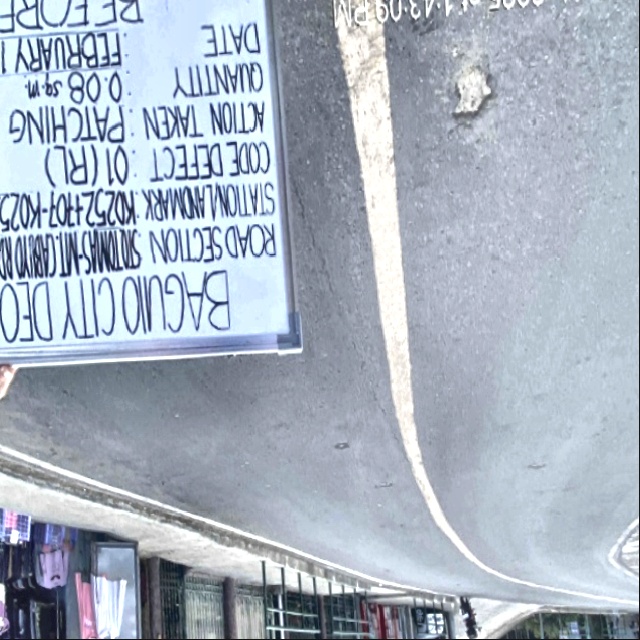 BAGUIO CITY DEO
ROAD SECTION : STO.TOMAS-MT.CABUYAO RD
STATION/LANDMARK : K0252+407-K025
CODE DEFECT : 01 (RL)
ACTION TAKEN : PATCHING
QUANTITY : 0.08 sq.m.
DATE : FEBRUARY 1
BEFORE
1:43:09 PM